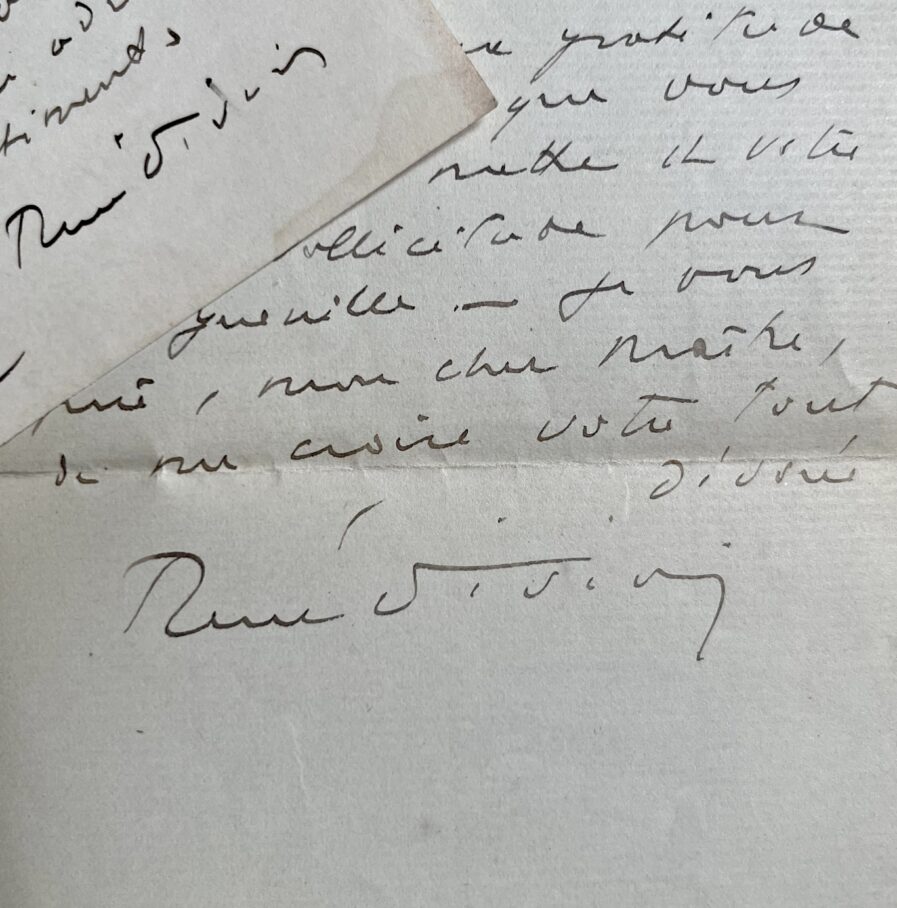 timents
René
gratitude
que vous
en votre
ollicitude pour
guenille — Je vous
prie, mon cher maître,
de me croire votre tout
dévoué
René